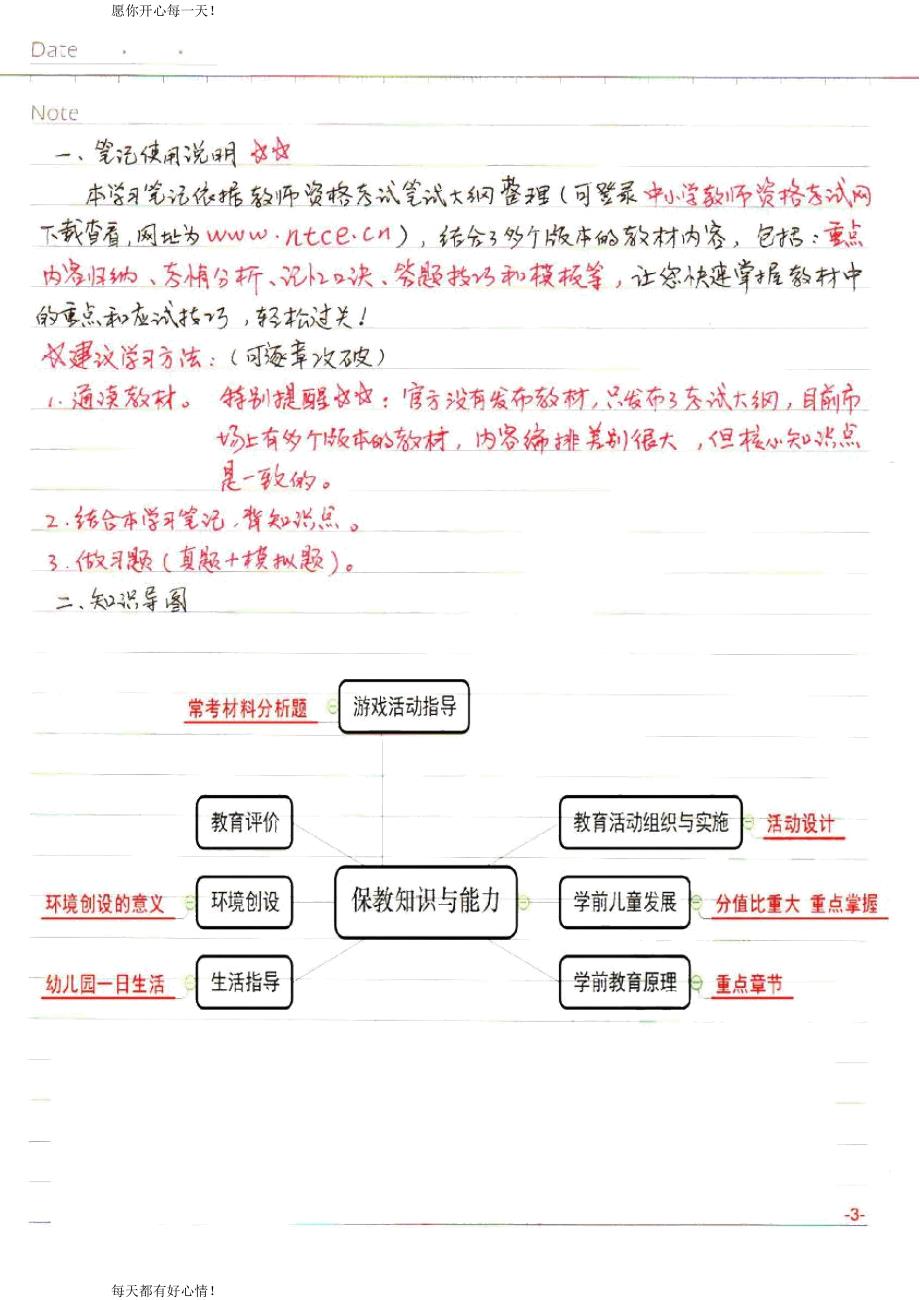 愿你开心每一天！
Date
Note
一、笔记使用说明 ☆☆
本学习笔记依据教师资格考试笔试大纲整理（可登录中小学教师资格考试网
下载查看，网址为www.ntce.cn），结合了多个版本的教材内容，包括：重点
内容归纳、考情分析、记忆口诀、答题技巧和模板等，让您快速掌握教材中
的重点和应试技巧，轻松过关！
☆建议学习方法：（可逐章攻破）
1.通读教材。 特别提醒☆☆：官方没有发布教材，只发布了考试大纲，目前市
场上有多个版本的教材，内容编排差别很大，但核心知识点
是一致的。
2.结合本学习笔记，背知识点。
3.做习题（真题+模拟题）。
二、知识导图
常考材料分析题 游戏活动指导
教育评价 教育活动组织与实施 活动设计
环境创设的意义 环境创设 保教知识与能力 学前儿童发展 分值比重大 重点掌握
幼儿园一日生活 生活指导 学前教育原理 重点章节
-3-
每天都有好心情！